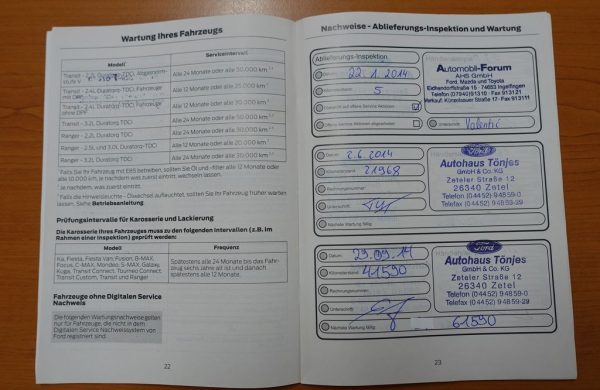 Wartung Ihres Fahrzeugs
Modell
Serviceintervall
Alle 24 Monate oder alle 50.000 km
Alle 12 Monate oder alle 25.000 km
Alle 12 Monate oder alle 20.000 km
Transit - 3.2L Duratorq-TDCi
Alle 24 Monate oder alle 50.000 km
Ranger - 2.2L Duratorq-TDCi
Alle 24 Monate oder alle 30.000 km
Ranger - 2.5L und 3.0L Duratorq-TDCi
Alle 12 Monate oder alle 20.000 km
Ranger - 3.2L Duratorq-TDCi
Alle 24 Monate oder alle 30.000 km
Falls Sie Ihr Fahrzeug mit E85 betreiben, sollten Sie Öl und -filter alle 12 Monate oder
alle 10.000 km, je nachdem was zuerst eintritt, wechseln lassen.
Je nachdem, was zuerst eintritt.
Falls die Hinweisleuchte - Ölwechsel aufleuchtet, sollten Sie Ihr Fahrzeug früher warten
lassen. Siehe Betriebsanleitung.
Prüfungsintervalle für Karosserie und Lackierung
Die Karosserie Ihres Fahrzeuges muss zu den folgenden Intervallen (z.B. im
Rahmen einer Inspektion) geprüft werden:
Modell
Frequenz
Ka, Fiesta, Fiesta Van, Fusion, B-MAX,
Focus, C-MAX, Mondeo, S-MAX, Galaxy,
Kuga, Transit Connect, Tourneo Connect,
Transit Custom, Transit und Ranger
Spätestens alle 24 Monate bis das Fahr-
zeug sechs Jahre alt ist und danach
spätestens alle 12 Monate.
Fahrzeuge ohne Digitalen Service
Nachweis
Die folgenden Wartungsnachweise gelten
nur für Fahrzeuge, die nicht in dem
Digitalen Service Nachweissystem von
Ford registriert sind.
22
Nachweise - Ablieferungs-Inspektion und Wartung
Ablieferungs-Inspektion
Datum
22.1.2014
Kilometerstand
5
Überprüft auf offene Service Aktionen
Offene Service Aktionen abgearbeitet
Automobil-Forum
AHS GmbH
Ford, Mazda und Toyota
Eichendorffstraße 15 · 74653 Ingelfingen
Telefon (07940) 91510 · Fax 913121
Verkauf: Künzelsauer Straße 17 · Fax 913111
Unterschrift
Datum
2.6.2014
Kilometerstand
21968
Rechnungsnummer
Unterschrift
Nächste Wartung fällig:
Ford
Autohaus Tönjes
GmbH & Co. KG
Zeteler Straße 12
26340 Zetel
Telefon (0 44 52) 94 8 59-0
Telefax (0 44 52) 94 8 59-29
Datum
29.09.14
Kilometerstand
41590
Rechnungsnummer
Unterschrift
Nächste Wartung fällig:
61590
Ford
Autohaus Tönjes
GmbH & Co. KG
Zeteler Straße 12
26340 Zetel
Telefon (0 44 52) 94 8 59-0
Telefax (0 44 52) 94 8 59-29
23